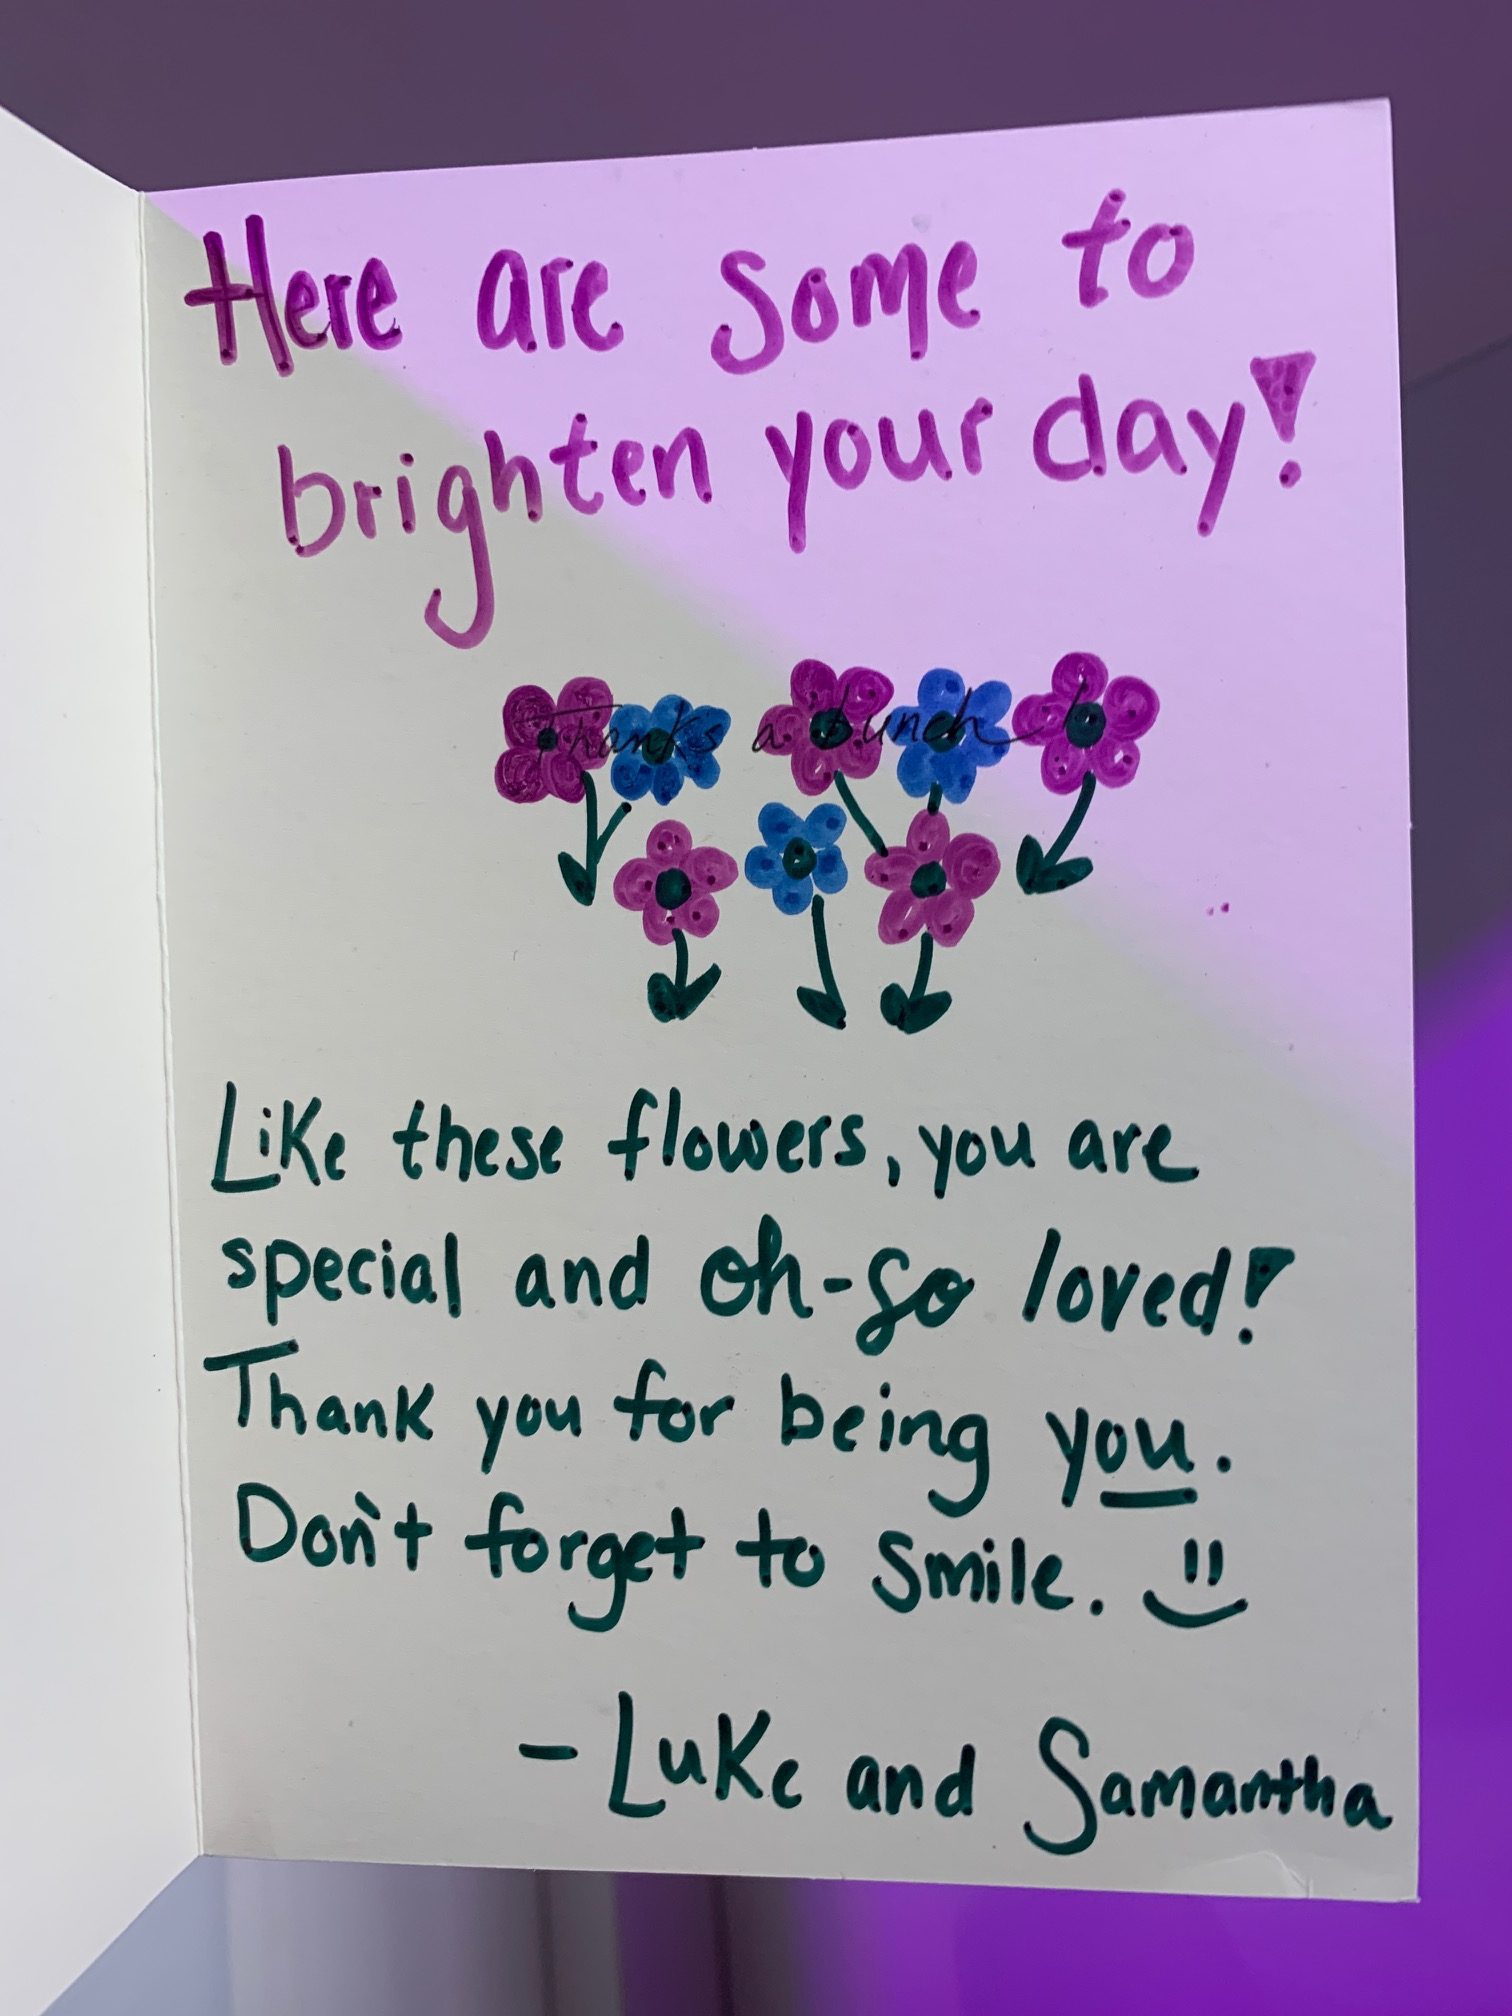 Here are some to
brighten your day!
Thanks a bunch
Like these flowers, you are
special and oh-so loved!
Thank you for being you.
Don't forget to smile.
- Luke and Samantha